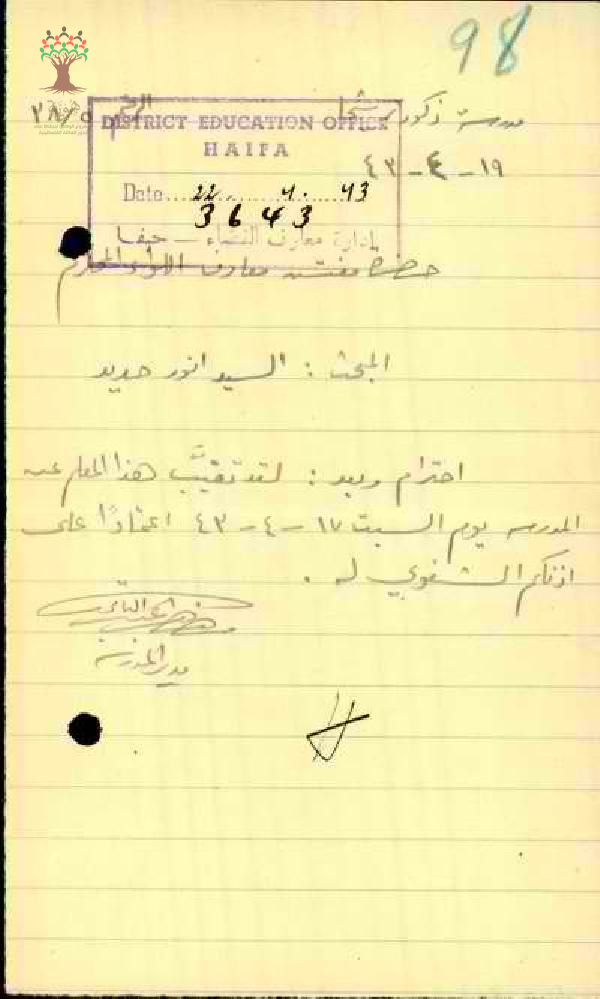 98
مدرسة ذكور شحا
الرقم ٢٨/٥
DISTRICT EDUCATION OFFICE
HAIFA
١٩-٤-٤٣
Date....22....4....43
3643
إدارة معارف القضاء — حيفا
حضرة مفتش معارف اللواء المحترم
المبحث : السيد انور حديد
احترام وبعد : لقد تغيَّب هذا المعلم عن
المدرسة يوم السبت ١٧-٤-٤٣ اعتمادًا على
اذنكم الشفوي له .
مدير المدرسة